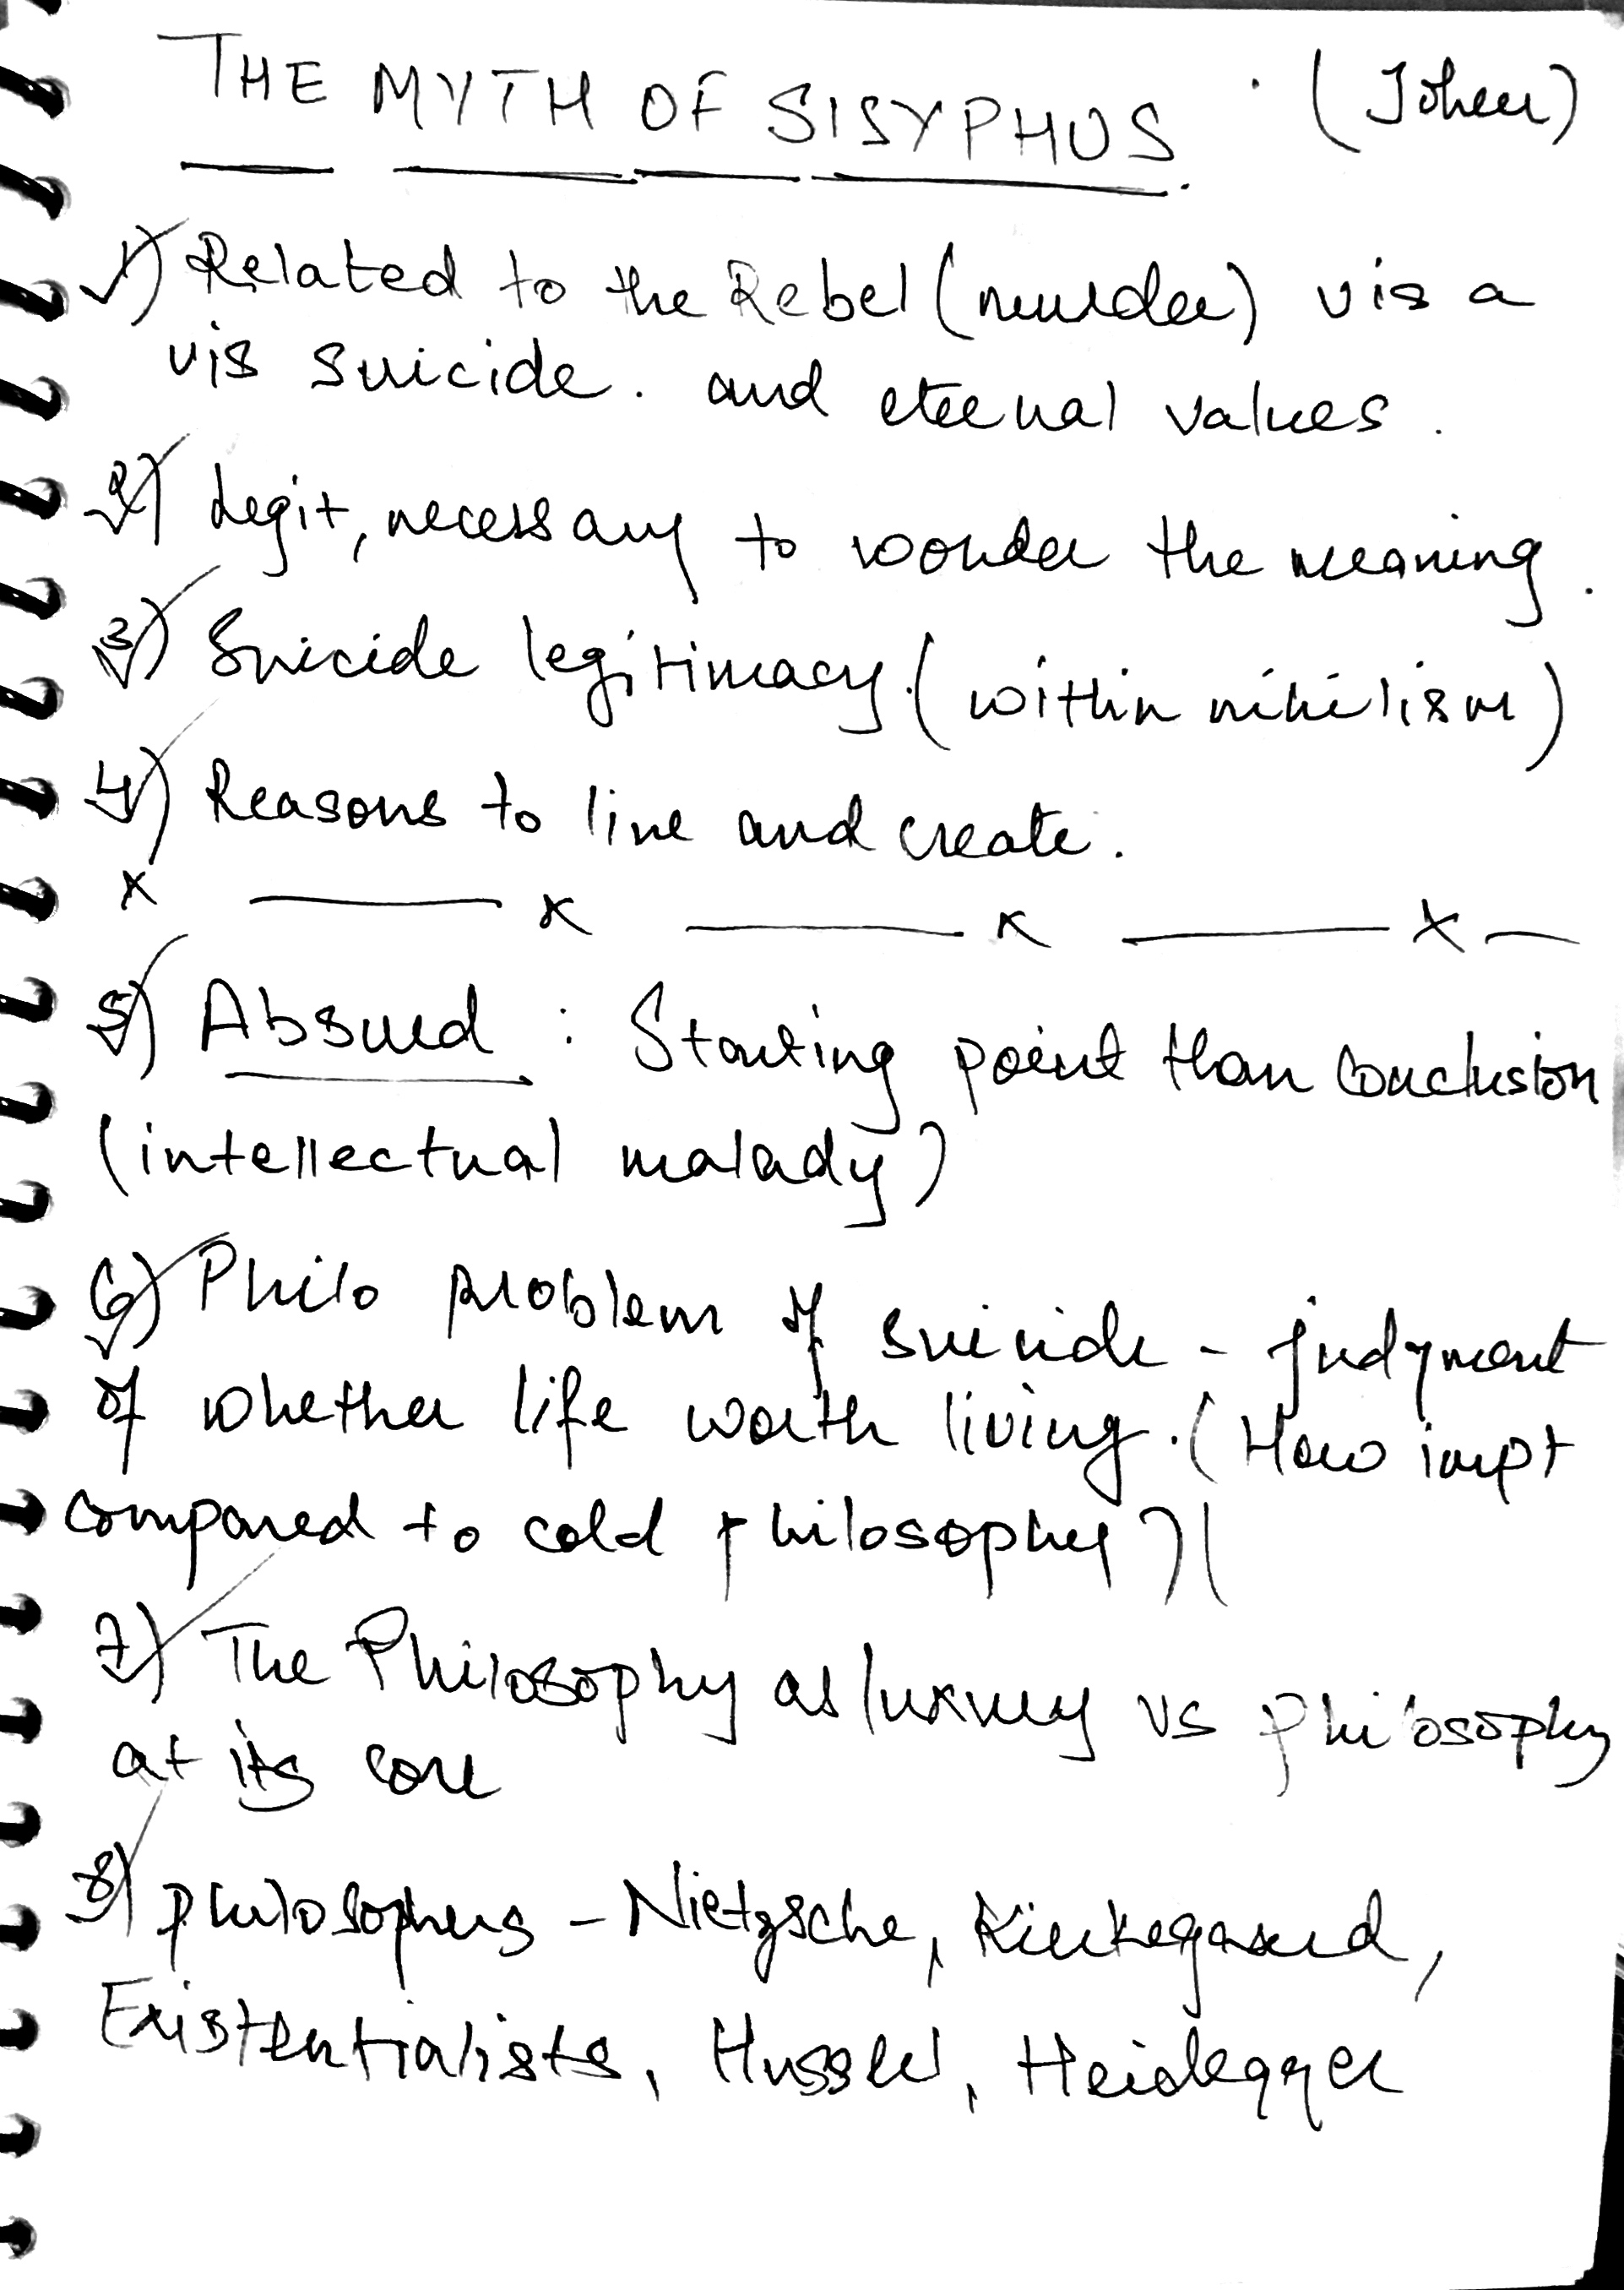 THE MYTH OF SISYPHUS.
1) Related to the Rebel (murder) vis a
vis suicide. and eternal values.
2) Legit, necessary to wonder the meaning.
3) Suicide legitimacy. (within nihilism)
4) Reasons to live and create.
x — x — x — x —
5) Absurd : Starting point than conclusion
(intellectual malady)
6) Philo problem of suicide - judgment
of whether life worth living. (How impt
compared to cold philosophy?)
7) The Philosophy as luxury vs philosophy
at its core
8) philosophers - Nietzsche, Kierkegaard,
Existentialists, Husserl, Heidegger